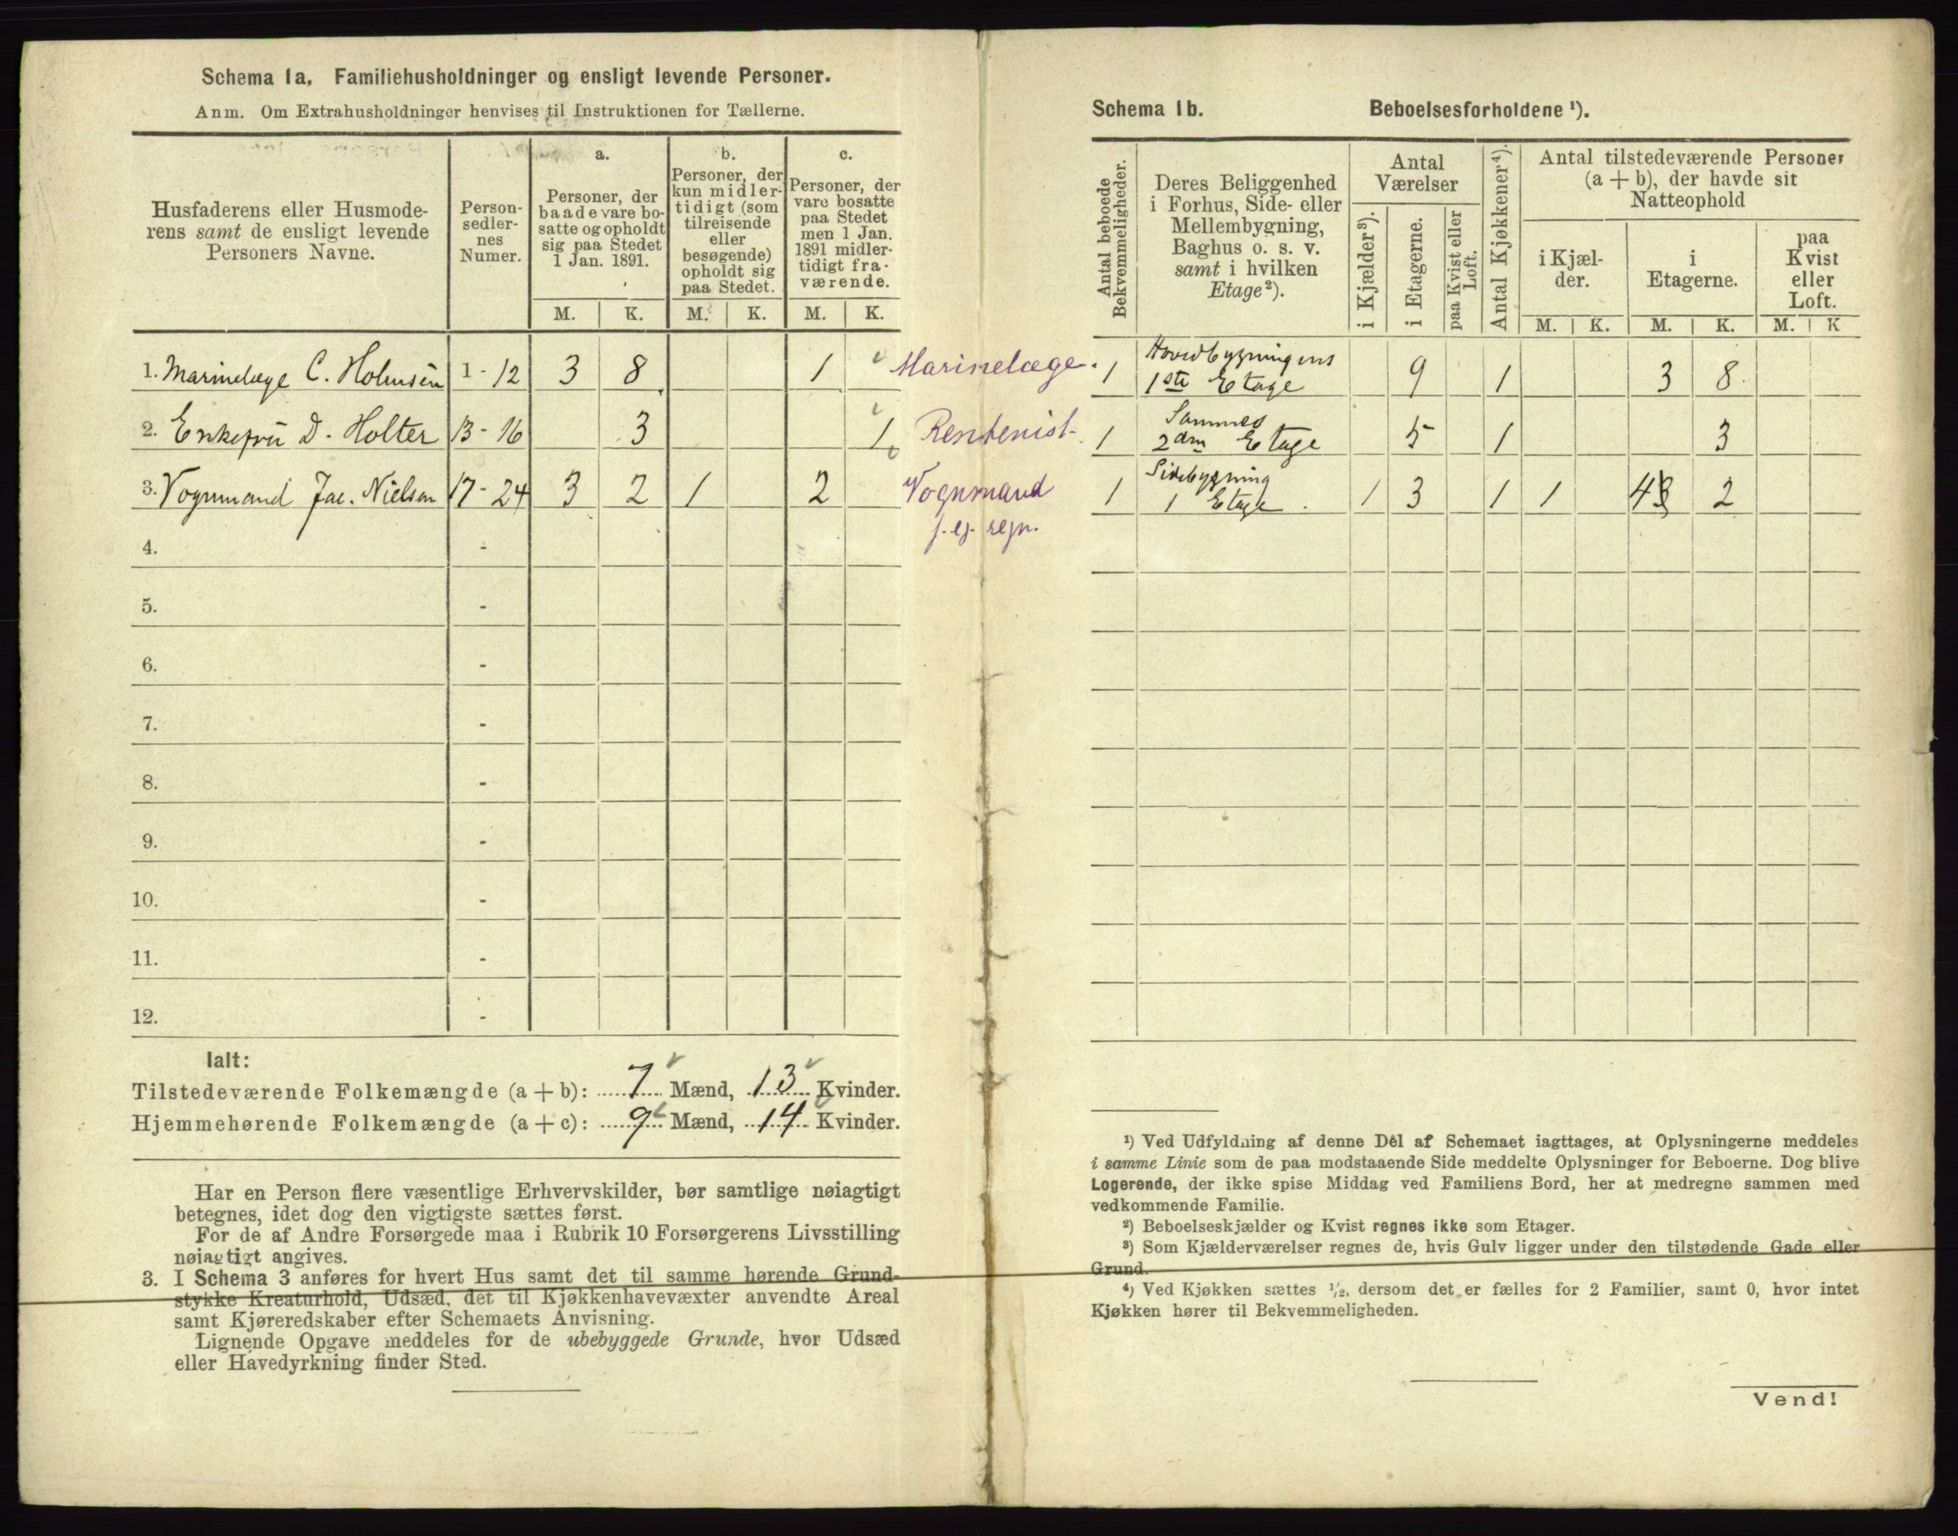 Schema 1a. Familiehusholdninger og ensligt levende Personer.
Anm. Om Extrahusholdninger henvises til Instruktionen for Tællerne.
Husfaderens eller Husmode-
rens samt de ensligt levende
Personers Navne.
Person-
sedler-
nes
Numer.
a.
Personer, der
baade vare bo-
satte og opholdt
sig paa Stedet
1 Jan. 1891.
b.
Personer, der
kun midler-
tidigt (som
tilreisende
eller
besøgende)
opholdt sig
paa Stedet.
c.
Personer, der
vare bosatte
paa Stedet
men 1 Jan.
1891 midler-
tidigt fra-
værende.
M. K. M. K. M. K.
1. Marinelæge C. Holmsen 1 - 12 3 8 1 Marinelæge.
2. Enkefru D. Holter 13 - 16 3 1 Rentenist.
3. Vognmand Jac. Nielsen 17 - 24 3 2 1 2 Vognmand
f. eg. regn.
4. -
5. -
6. -
7. -
8. -
9. -
10. -
11. -
12. -
Ialt:
Tilstedeværende Folkemængde (a + b): 7 Mænd, 13 Kvinder.
Hjemmehørende Folkemængde (a + c): 9 Mænd, 14 Kvinder.
Har en Person flere væsentlige Erhvervskilder, bør samtlige nøiagtigt
betegnes, idet dog den vigtigste sættes først.
For de af Andre Forsørgede maa i Rubrik 10 Forsørgerens Livsstilling
nøiagtigt angives.
3. I Schema 3 anføres for hvert Hus samt det til samme hørende Grund-
stykke Kreaturhold, Udsæd, det til Kjøkkenhavevæxter anvendte Areal
samt Kjøreredskaber efter Schemaets Anvisning.
Lignende Opgave meddeles for de ubebyggede Grunde, hvor Udsæd
eller Havedyrkning finder Sted.
Schema 1b. Beboelsesforholdene ¹).
Antal beboede
Bekvemmeligheder.
Deres Beliggenhed
i Forhus, Side- eller
Mellembygning,
Baghus o. s. v.
samt i hvilken
Etage²).
Antal
Værelser
i Kjælder³).
i Etagerne.
paa Kvist eller
Loft.
Antal Kjøkkener⁴).
Antal tilstedeværende Personer
(a + b), der havde sit
Natteophold
i Kjæl-
der.
i
Etagerne.
paa
Kvist
eller
Loft.
M. K. M. K. M. K
1 Hovedbygningens
1ste Etage 9 1 3 8
1 Sammes
2den Etage 5 1 3
1 Sidebygning
1 Etage. 1 3 1 1 43 2
¹) Ved Udfyldning af denne Del af Schemaet iagttages, at Oplysningerne meddeles
i samme Linie som de paa modstaaende Side meddelte Oplysninger for Beboerne. Dog blive
Logerende, der ikke spise Middag ved Familiens Bord, her at medregne sammen med
vedkommende Familie.
²) Beboelseskjælder og Kvist regnes ikke som Etager.
³) Som Kjælderværelser regnes de, hvis Gulv ligger under den tilstødende Gade eller
Grund.
⁴) Ved Kjøkken sættes ½, dersom det er fælles for 2 Familier, samt 0, hvor intet
Kjøkken hører til Bekvemmeligheden.
Vend!